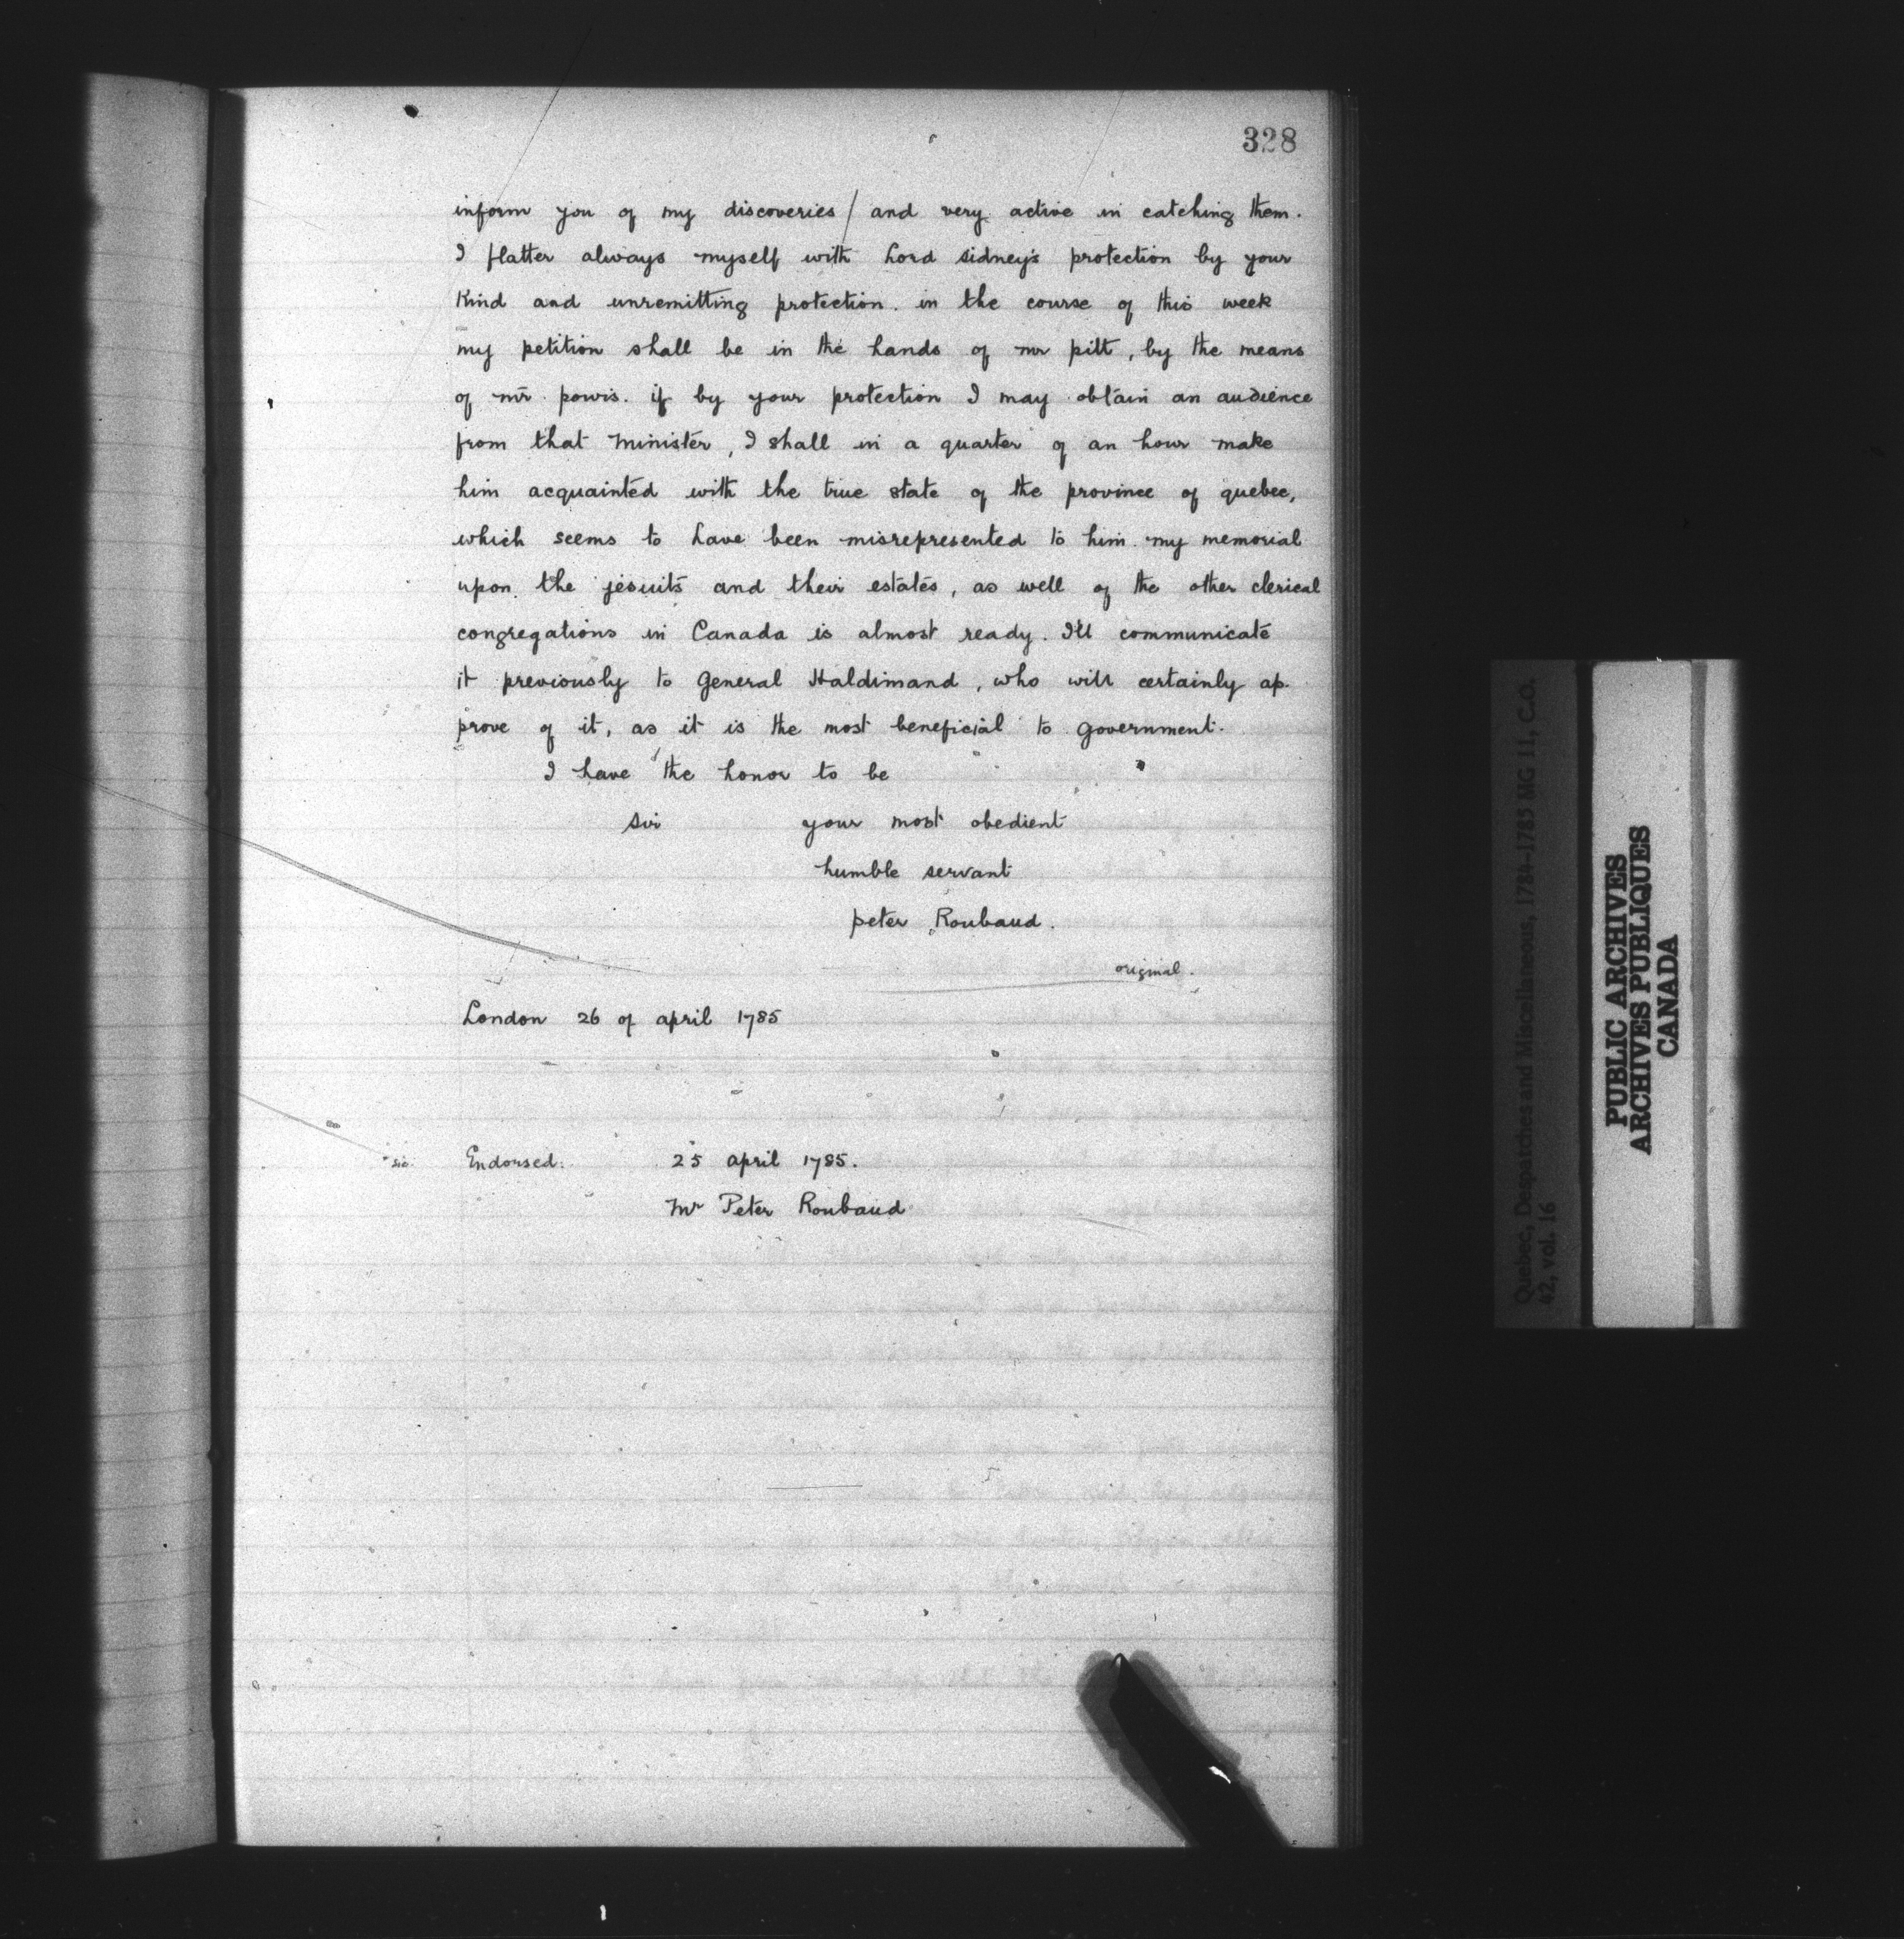 328
inform you of my discoveries / and very active in catching them.
I flatter always myself with Lord Sidney's protection by your
kind and unremitting protection. in the course of this week
my petition shall be in the hands of mr pitt, by the means
of mr powis. if by your protection I may obtain an audience
from that minister, I shall in a quarter of an hour make
him acquainted with the true state of the province of quebec,
which seems to have been misrepresented to him. my memorial
upon the jesuits and their estates, as well of the other clerical
congregations in Canada is almost ready. I'll communicate
it previously to general Haldimand, who will certainly ap-
prove of it, as it is the most beneficial to government.
I have the honor to be
Sir your most obedient
humble servant
peter Roubaud.
original.
London 26 of april 1785
sic. Endorsed: 25 april 1785.
Mr Peter Roubaud
Quebec, Despatches and Miscellaneous, 1784-1785 MG 11, C.O.
42, vol. 16
PUBLIC ARCHIVES
ARCHIVES PUBLIQUES
CANADA